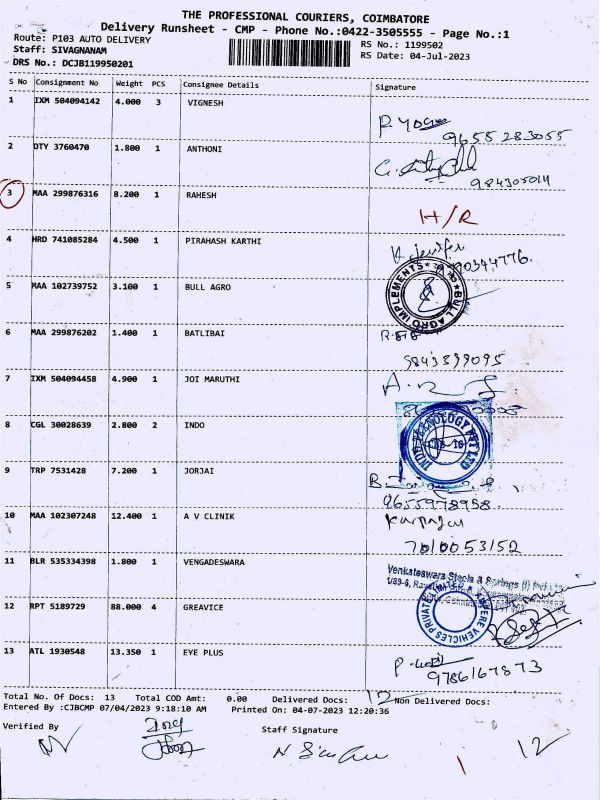 THE PROFESSIONAL COURIERS, COIMBATORE
Delivery Runsheet - CMP - Phone No.:0422-3505555 - Page No.:1
Route: P103 AUTO DELIVERY
RS No.: 1199502
Staff: SIVAGNANAM
RS Date: 04-Jul-2023
DRS No.: DCJB119950201
S No Consignment No Weight PCS Consignee Details Signature
1 IXM 504094142 4.000 3 VIGNESH
9655283055
2 OTY 3760470 1.800 1 ANTHONI
3 MAA 299876316 8.200 1 RAHESH
H/R
4 HRD 741085284 4.500 1 PIRAHASH KARTHI
K. Jenifer
5 MAA 102739752 3.100 1 BULL AGRO
BULL AGRO IMPLEMENTS
6 MAA 299876202 1.400 1 BATLIBAI
9843399095
7 IXM 504094458 4.900 1 JOI MARUTHI
8 CGL 30028639 2.800 2 INDO
9 TRP 7531428 7.200 1 JORJAI
9655978958
10 MAA 102307248 12.400 1 A V CLINIK
7010053152
11 BLR 535334398 1.800 1 VENGADESWARA
Venkateswara Steels & Springs (I) Pvt Ltd
12 RPT 5189729 88.000 4 GREAVICE
13 ATL 1930548 13.350 1 EYE PLUS
9786167873
Total No. Of Docs: 13 Total COD Amt: 0.00 Delivered Docs: 12 Non Delivered Docs:
Entered By :CJBCMP 07/04/2023 9:18:10 AM Printed On: 04-07-2023 12:20:36
Verified By
Staff Signature
12